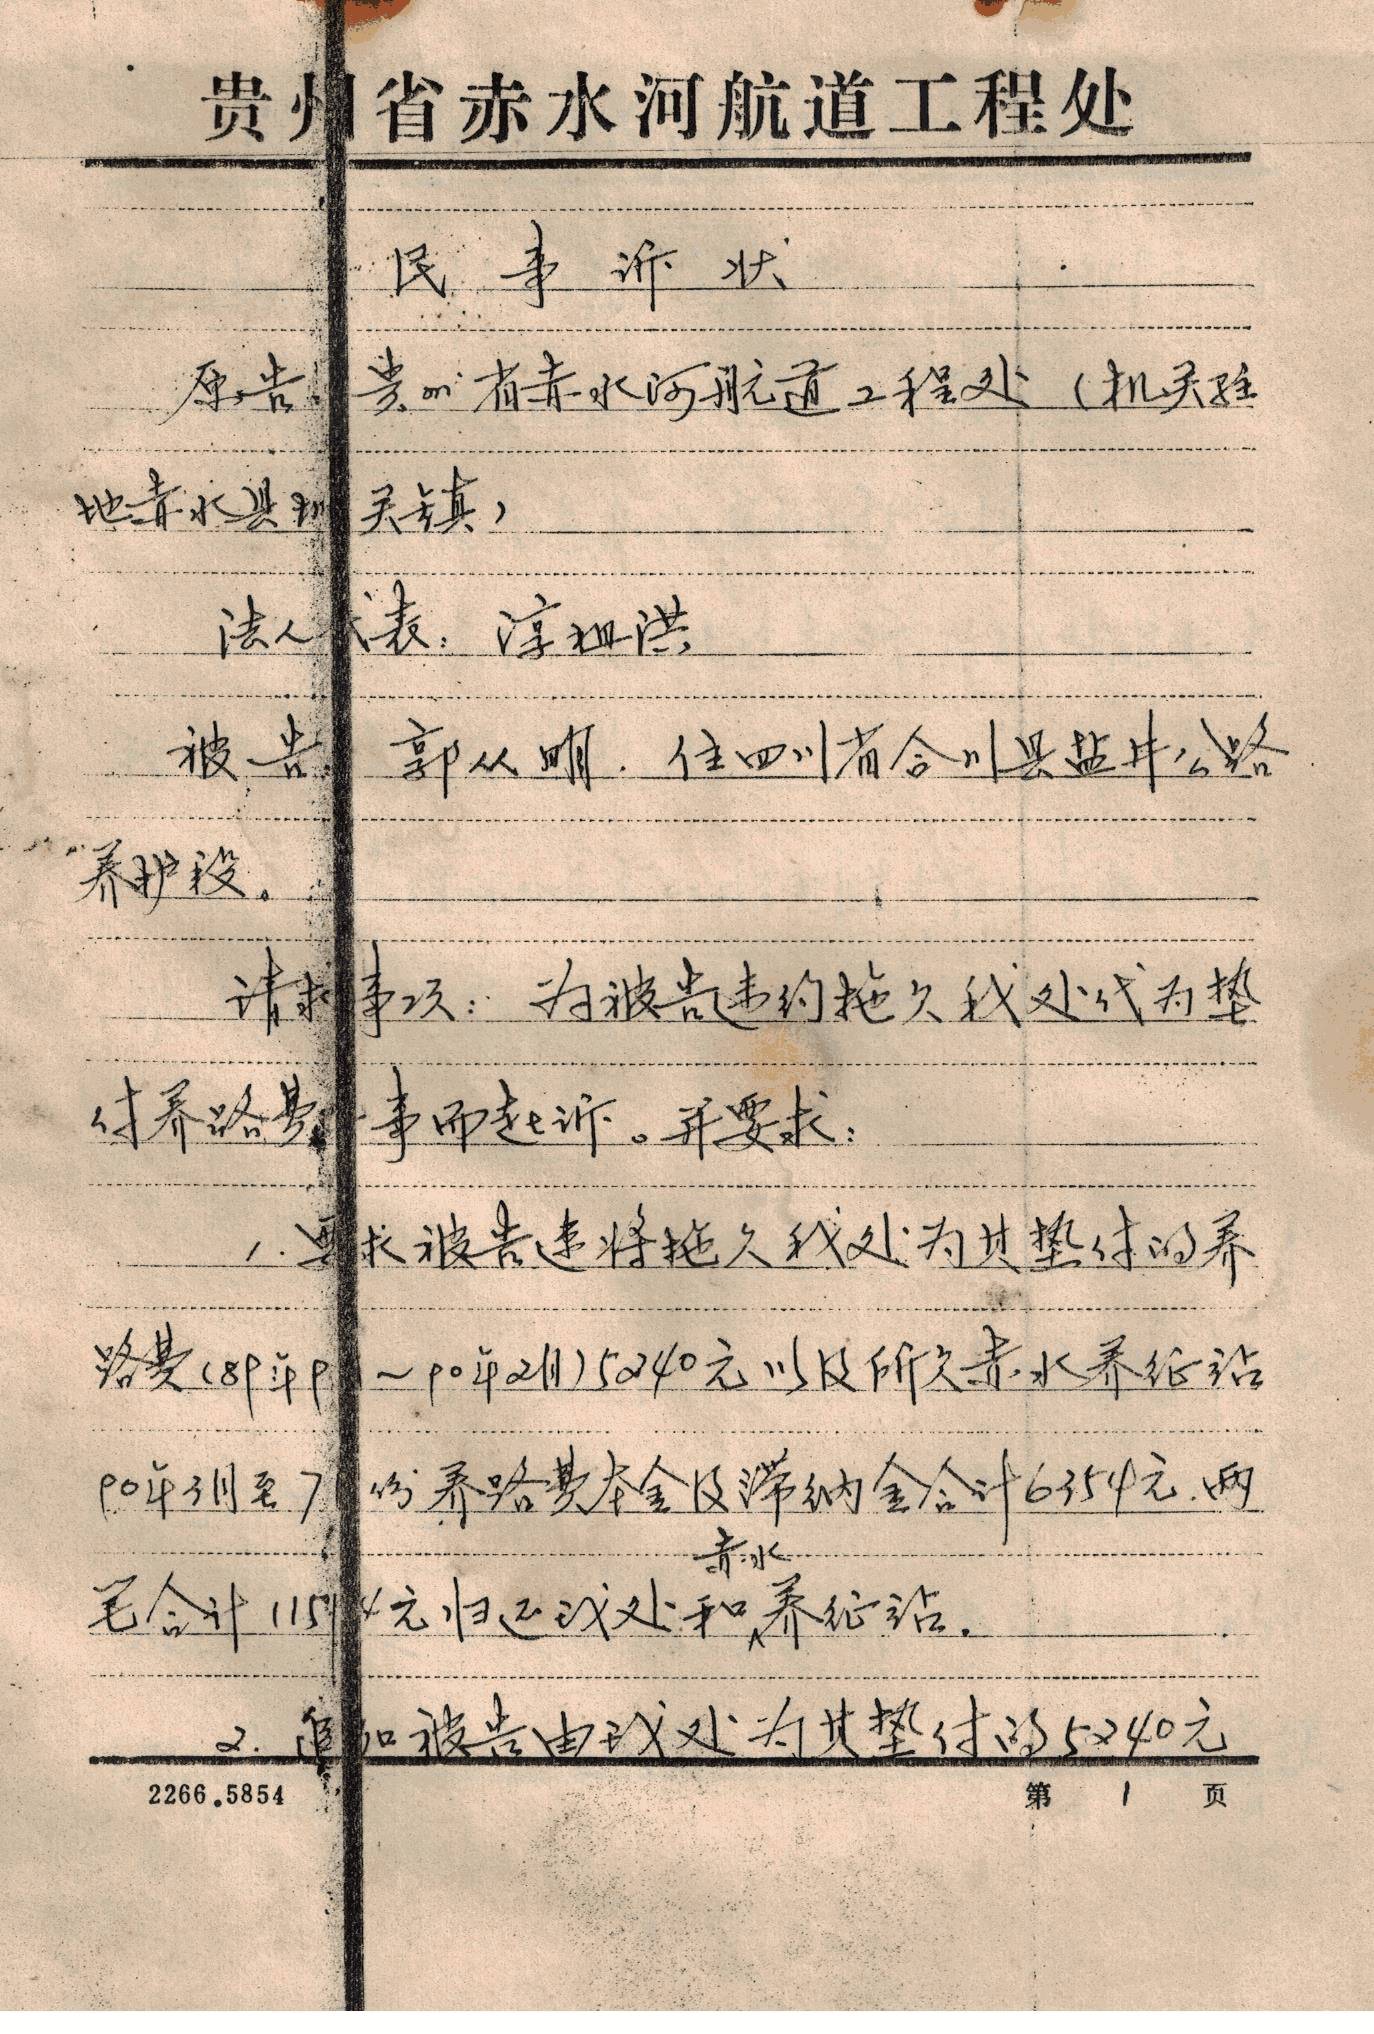 贵州省赤水河航道工程处
民事诉状
原告:贵州省赤水河航道工程处(机关驻
地赤水县 关镇)
法人代表:淳祖洪
被告:郭从明.住四川省合川县盐井公路
养护段。
请求事项:为被告违约拖欠我处代为垫
付养路费一事而起诉。并要求:
1.要求被告速将拖欠我处为其垫付的养
路费(89年9月~90年2月)5240元以及所欠赤水养征站
90年3月至7月份养路费本金及滞纳金合计6354元.两
笔合计115 4元归还我处和赤水养征站.
2.追加被告由我处为其垫付的5240元
2266.5854
第1页